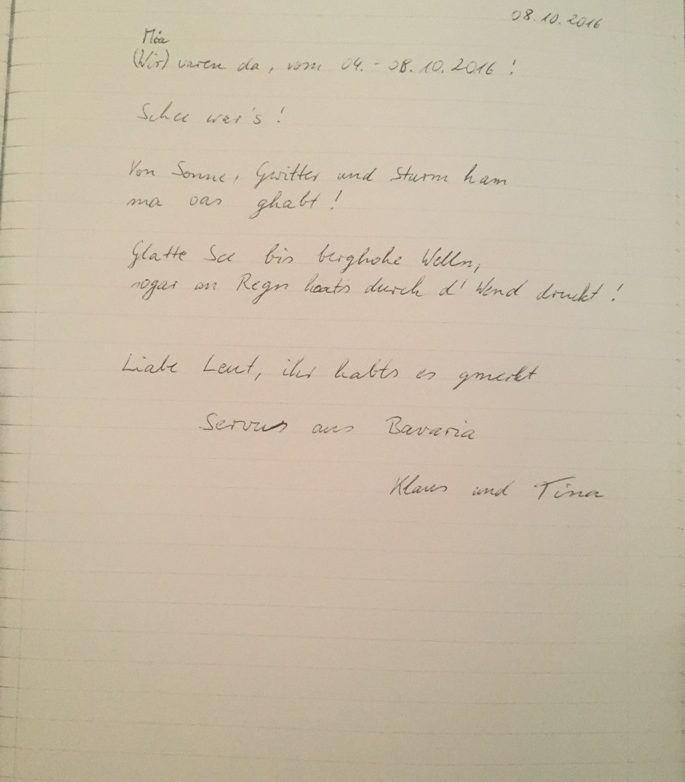 08.10.2016
Mia
(Wir) waren da, vom 04. - 08.10.2016!
Schee war's!
Von Sonne, Gwitter und Sturm ham
ma oas ghabt!
Glatte See bis berghohe Welln,
sogar an Regn hats durch d' Wend druckt!
Liabe Leut, ihr habts es gmerkt
Servus aus Bavaria
Klaus und Tina